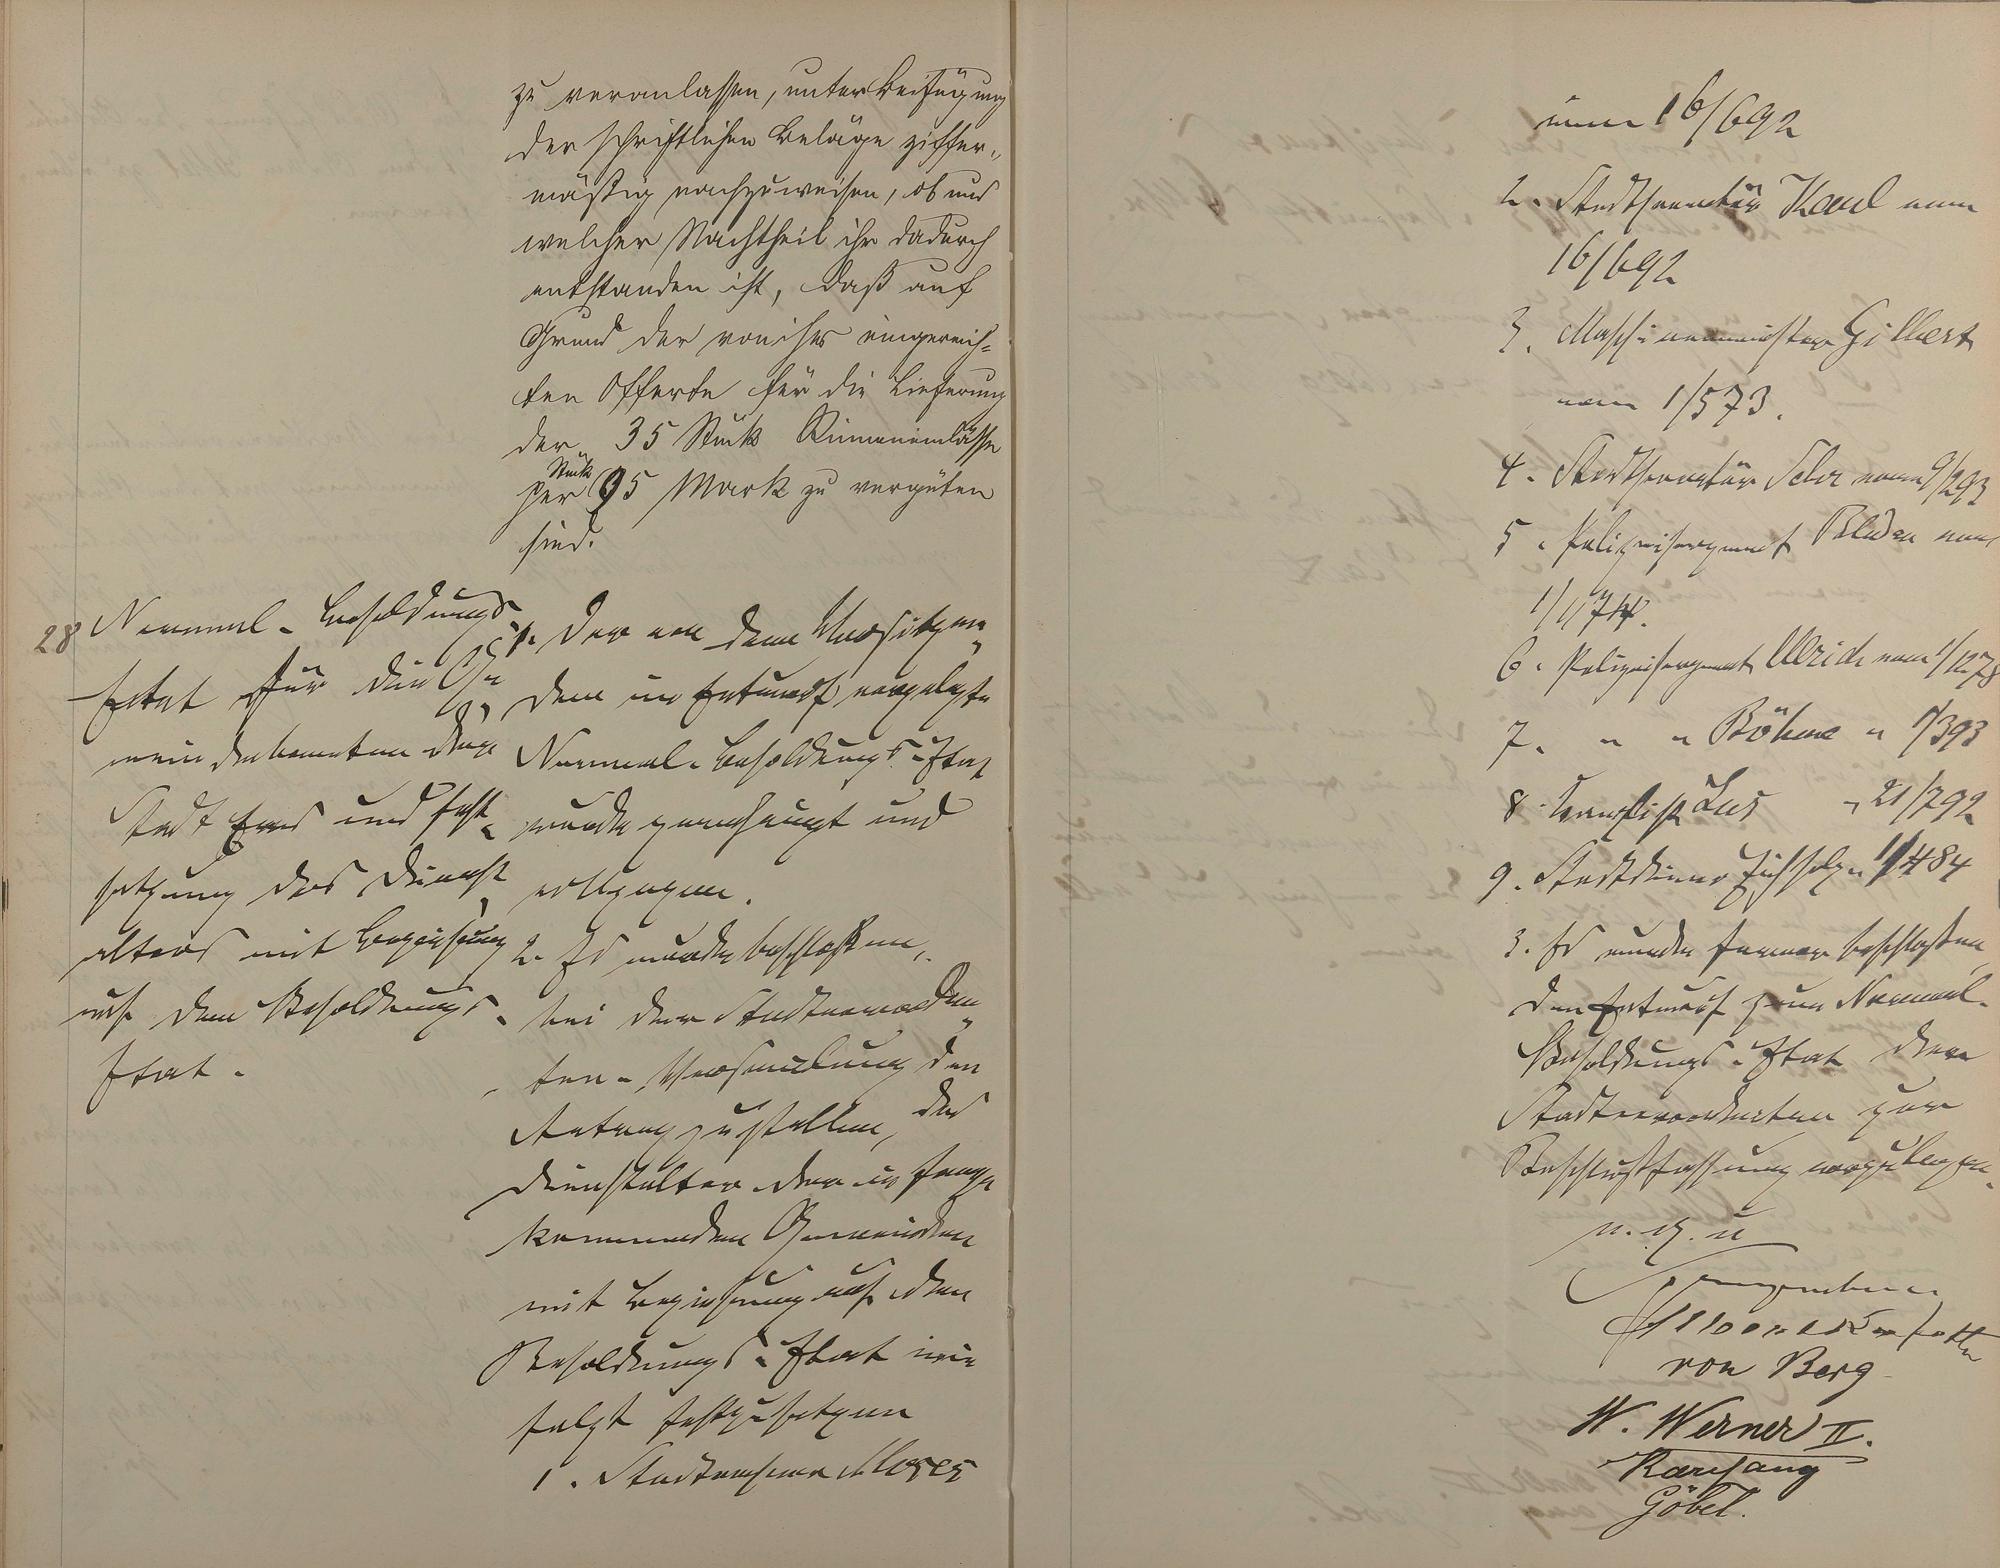 zu veranlassen, unter Beifügung
der schriftlichen Beläge ziffer-
mäßig nachzuweisen, ob und
welcher Nachtheil ihr dadurch
entstanden ist, daß auf
Grund der von ihr eingereich-
ten Offerte für die Lieferung
der 35 Stück Rinneneinlässe
per Stück 95 Mark zu vergüten
sind.
28 Normal-Besoldungs-
Etat für die Ge-
meindebeamten der
Stadt Ems und Fest-
setzung des Dienst-
alters mit Beziehung
auf den Besoldungs-
Etat.
1. Der von dem Vorsitzen-
den im Entwurf vorgelegte
Normal-Besoldungs-Etat
wurde genehmigt und
vollzogen.
2. Es wurde beschlossen,
bei der Stadtverordne-
ten-Versammlung den
Antrag zu stellen, das
Dienstalter der in Frage
kommenden Gemeinde
mit Beziehung auf den
Besoldungs-Etat wie
folgt festzusetzen
1. Stadtrechner Moses
vom 16/6 92
2. Stadtsecretär Kaul vom
16/6 92
3. Maschinenmeister Gilbert
vom 1/5 73.
4. Stadtsecretär vom 9/2 93
5. Polizeisergeant vom
1/1 74.
6. Polizeisergeant Ulrich vom 1/12 78
7. " " Böhme " 1/3 93
8. Kanzlist " 21/7 92
9. Stadtdiener " 1/4 84
3. Es wurde ferner beschlossen
den Entwurf zum Normal-
Besoldungs-Etat der
Stadtverordneten zur
Beschlußfassung vorzulegen.
v. g. u
von Berg
W. Werner II.
Göbel.